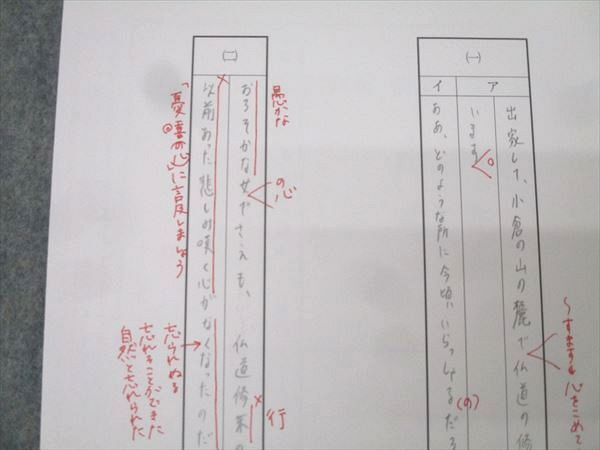 (一)
ア
出家して、小倉の山の麓で仏道の修
います
〜すますも心をこめて
イ
ああ、どのような所に今頃いらっしゃるだろ
(の)
(二)
愚かな
おろそかな女でさえも、仏道修業の
の心
行
以前あった悲しみ嘆く心がなくなったのだ
「憂喜の心」に言及しましょう
忘られぬる
忘れることができた
自然と忘れられた